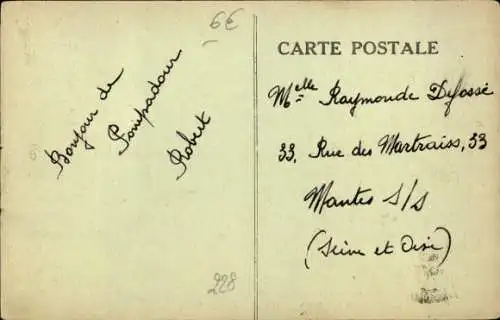 6€
Bonjour de
Pompadour
Robert
228
CARTE POSTALE
Melle Raymonde Defossé
33, Rue des Martraiss, 33
Mantes S/S
(Seine et Oise)